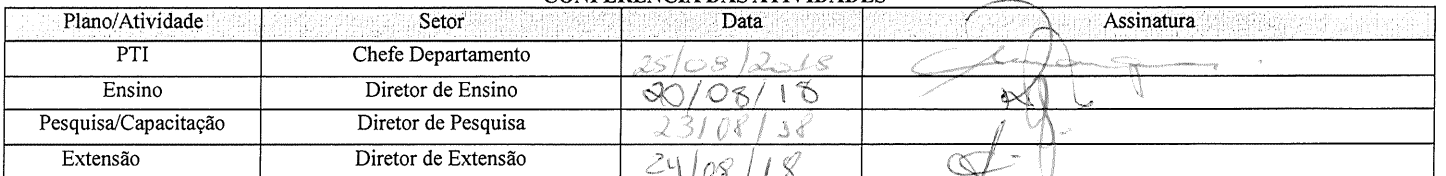 CONFERÊNCIA DAS ATIVIDADES
Plano/Atividade Setor Data Assinatura
PTI Chefe Departamento 25/08/2018
Ensino Diretor de Ensino 20/08/18
Pesquisa/Capacitação Diretor de Pesquisa 23/08/18
Extensão Diretor de Extensão 24/08/18